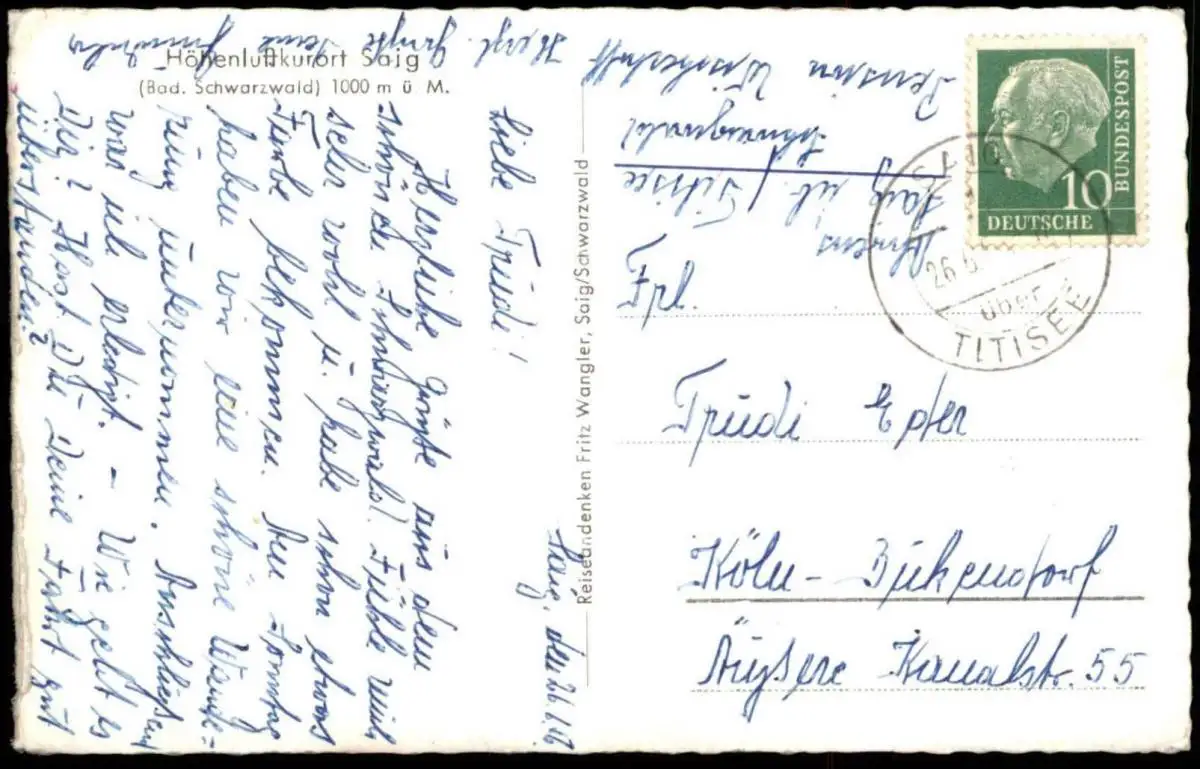 Höhenluftkurort Saig
(Bad. Schwarzwald) 1000 m ü M.
Saig, den 26.6.
Liebe Trudi!
Herzliche Grüße aus dem
schönen Schwarzwald. Fühle mich
sehr wohl u. habe schon etwas
Farbe bekommen. Am Sonntag
haben wir eine schöne Wande=
rung unternommen. Anschließend
war ich erledigt. - Wie geht es
Dir? Hast Du Deine Fahrt gut
überstanden?
Herzl. Grüße Deine
Reiseandenken Fritz Wangler, Saig/Schwarzwald
Pension
Saig üb. Titisee
Schwarzwald
BUNDESPOST
10
DEUTSCHE
SAIG
26.6.
über
TITISEE
Frl.
Trudi
Köln-Bickendorf
Äußere Kanalstr. 55